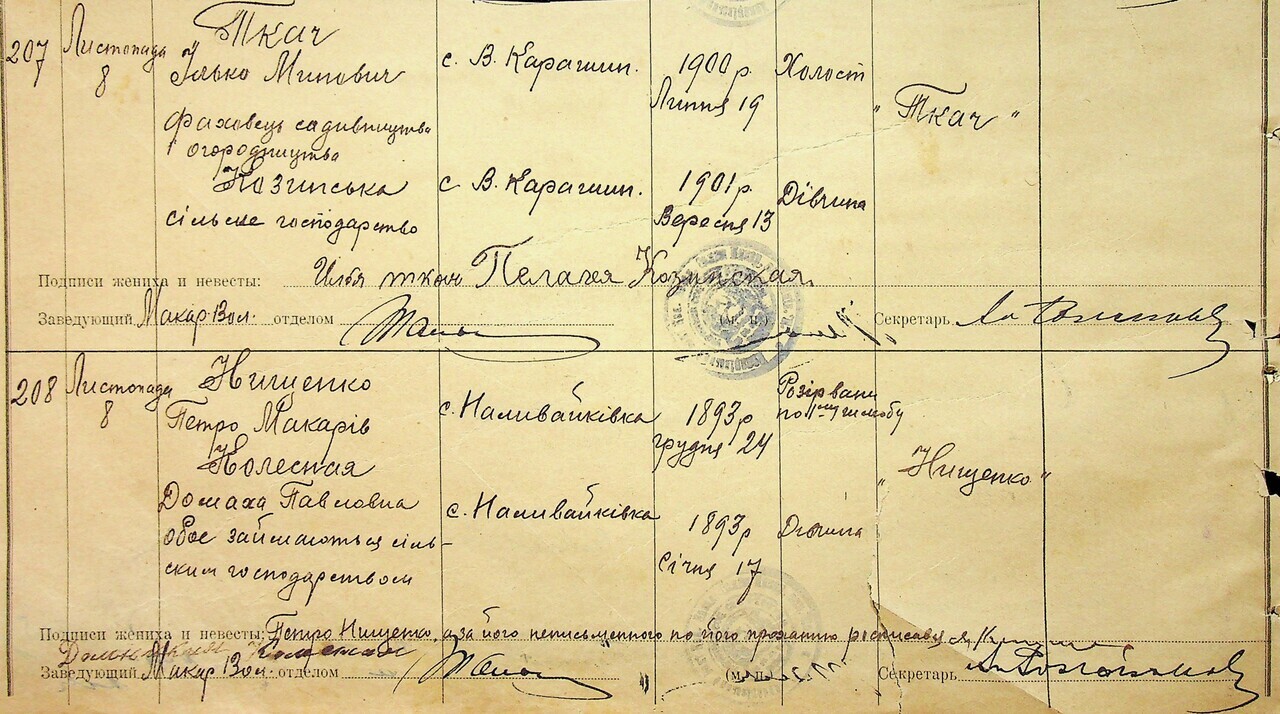 207
Листопада
8
Ткач
Ілько Минович
фаховець садивництва
і огородництва
с. В. Карашин.
1900 р.
Липня 19
Холост
"Ткач"
Козинська
сільське господарство
с В. Карашин.
1901 р.
Вересня 13
Дівчина
Подписи жениха и невесты: Илья ткач Пелагея Козинская
Заведующий Макар. Вол. отделом
(М. П.)
Секретарь
208
Листопада
8
Нищенко
Петро Макарів
с. Наливайківка
1893 р
грудня 24
Розірвани
по 1му шлюбу
"Нищенко"
Колесная
Домаха Павловна
обоє займаються сіль-
ским господарством
с. Наливайківка
1893 р
Січня 17
Дівчина
Подписи жениха и невесты: Петро Нищенко, а за його неписьменного по його проханню росписався
Заведующий Макар Вол. отделом
(М. П.)
Секретарь